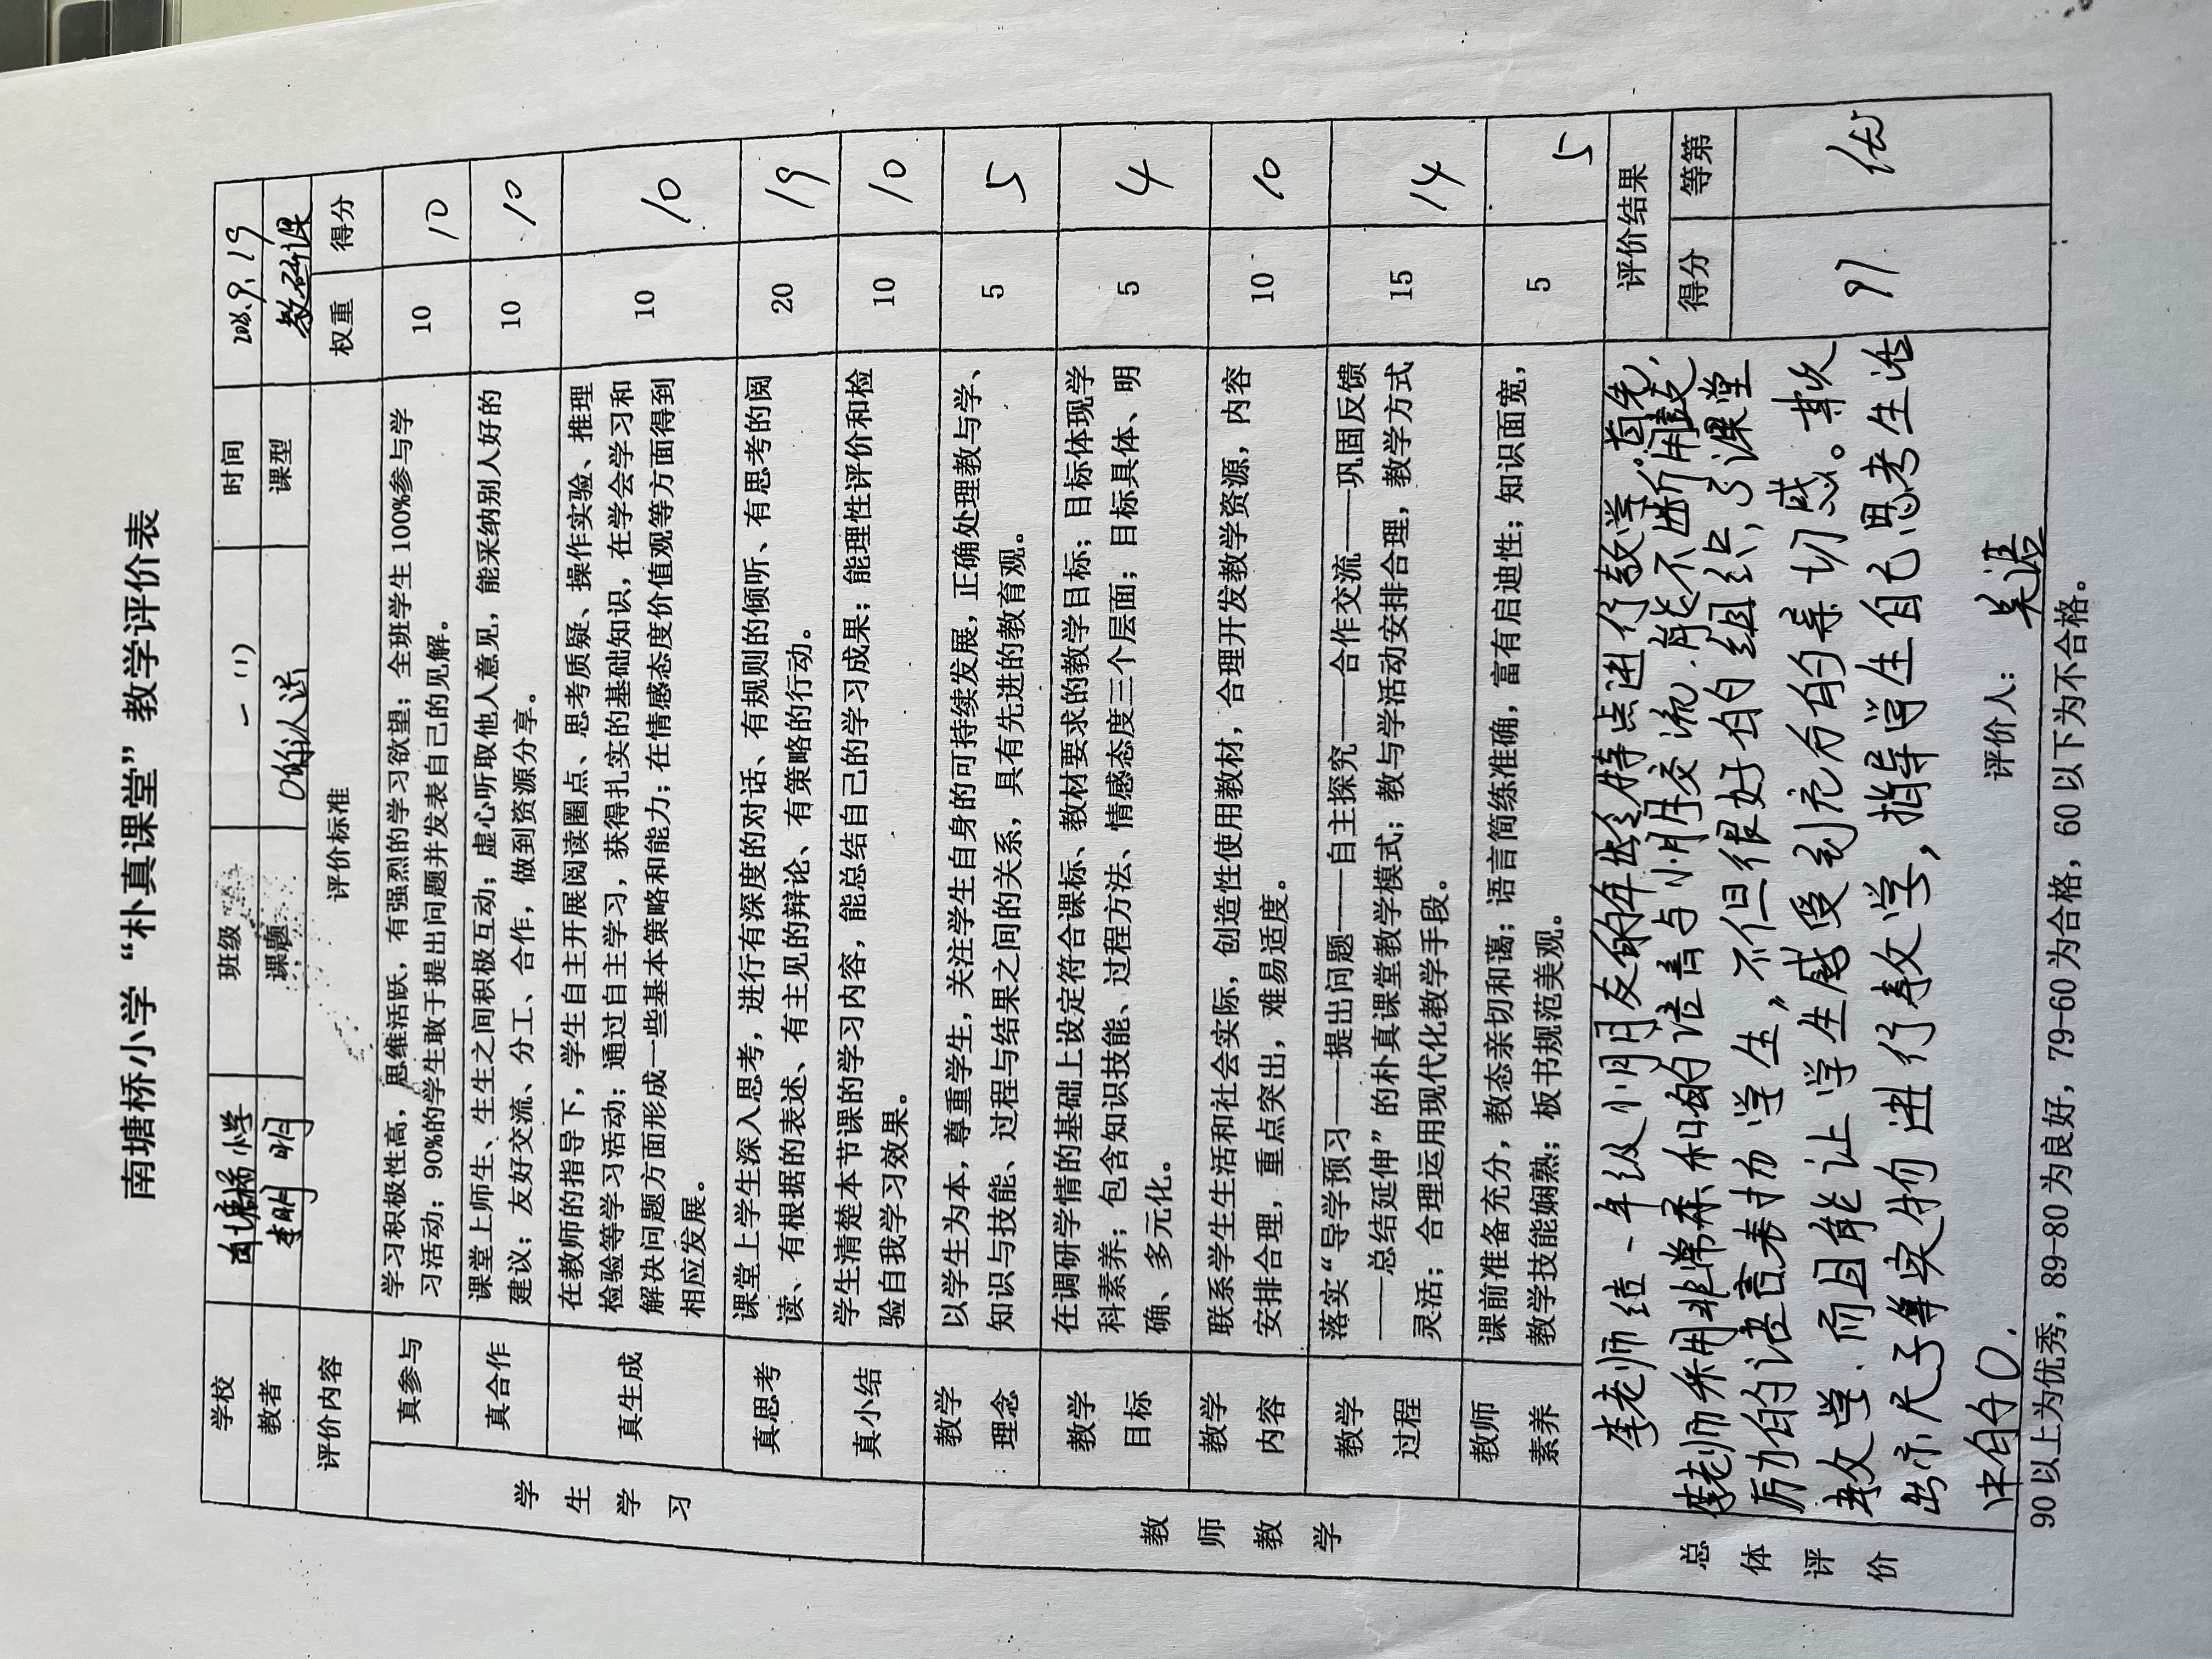 南塘桥小学“朴真课堂”教学评价表
学校 南塘桥小学 班级 一(1) 时间 9.19
教者 李明 明 课题 0的认识 课型 教研课
评价内容 评价标准 权重 得分
学生学习
真参与 学习积极性高，思维活跃，有强烈的学习欲望；全班学生100%参与学 10 10
习活动；90%的学生敢于提出问题并发表自己的见解。
真合作 课堂上师生、生生之间积极互动；虚心听取他人意见，能采纳别人好的 10 10
建议；友好交流、分工、合作，做到资源分享。
真生成 在教师的指导下，学生自主开展阅读圈点、思考质疑、操作实验、推理 10 10
检验等学习活动；通过自主学习，获得扎实的基础知识，在学会学习和
解决问题方面形成一些基本策略和能力；在情感态度价值观等方面得到
相应发展。
真思考 课堂上学生深入思考，进行有深度的对话、有规则的倾听、有思考的阅 20 19
读、有根据的表述、有主见的辩论、有策略的行动。
真小结 学生清楚本节课的学习内容，能总结自己的学习成果；能理性评价和检 10 10
验自我学习效果。
教师教学
教学理念 以学生为本，尊重学生，关注学生自身的可持续发展，正确处理教与学、 5 5
知识与技能、过程与结果之间的关系，具有先进的教育观。
教学目标 在调研学情的基础上设定符合课标、教材要求的教学目标；目标体现学 5 4
科素养；包含知识技能、过程方法、情感态度三个层面；目标具体、明
确、多元化。
教学内容 联系学生生活和社会实际，创造性使用教材，合理开发教学资源，内容 10 10
安排合理，重点突出，难易适度。
教学过程 落实“导学预习——提出问题——自主探究——合作交流——巩固反馈 15 14
——总结延伸”的朴真课堂教学模式；教与学活动安排合理，教学方式
灵活；合理运用现代化教学手段。
教师素养 课前准备充分，教态亲切和蔼；语言简练准确，富有启迪性；知识面宽， 5 5
教学技能娴熟；板书规范美观。
总体评价
李老师结一年级小朋友的年龄特点进行教学，首先，
李老师采用非常柔和的语言与小朋友交流，能不断用鼓
厉力的语言表扬学生，不但很好的组织了课堂
教学，而且能让学生感受到充分的亲切感。其次
出示尺子等实物进行教学，指导学生自己思考生活
中的0.
评价结果
得分 等第
97 优
评价人：吴洁
90以上为优秀，89-80为良好，79-60为合格，60以下为不合格。